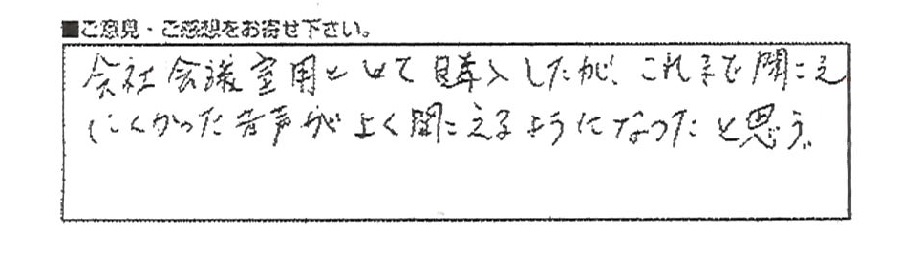 ■ご意見・ご感想をお寄せ下さい。
会社会議室用として購入したが、これまで聞こえ
にくかった音声がよく聞こえるようになったと思う。